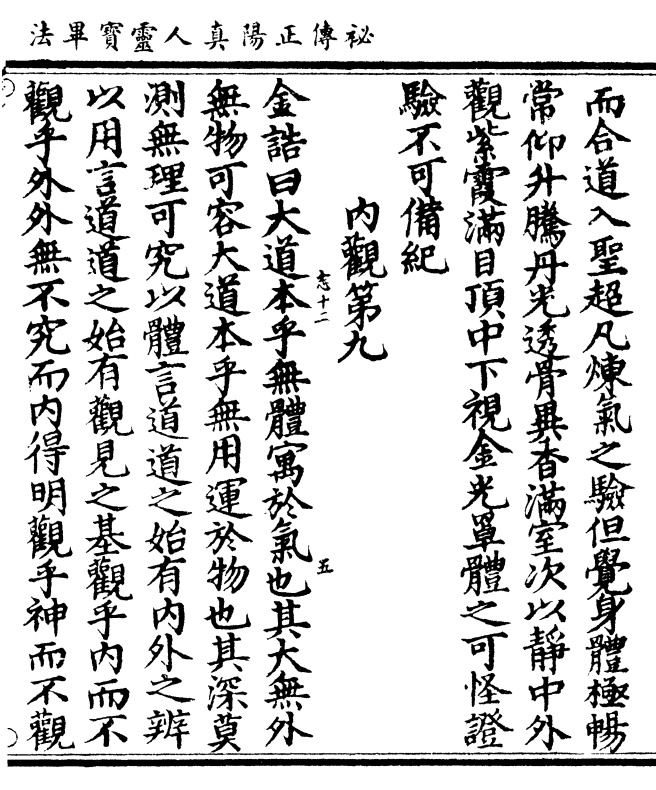 祕傳正陽真人靈寶畢法
而合道入聖超凡煉氣之驗但覺身體極暢
常仰升騰丹光透骨異香滿室次以靜中外
觀紫霞滿目頂中下視金光罩體之可怪證
驗不可備紀
內觀第九
志十二
五
金誥曰大道本乎無體寓於氣也其大無外
無物可容大道本乎無用運於物也其深莫
測無理可究以體言道道之始有內外之辨
以用言道道之始有觀見之基觀乎內而不
觀乎外外無不究而內得明觀乎神而不觀